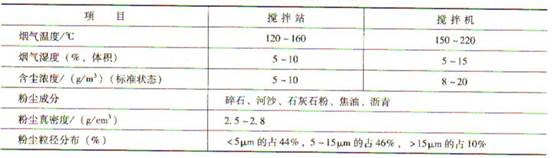 项 目 搅拌站 搅拌机
烟气温度/℃ 120~160 150~220
烟气湿度(%,体积) 5~10 5~15
含尘浓度/(g/m³)(标准状态) 5~10 8~20
粉尘成分 碎石、河沙、石灰石粉、焦油、沥青
粉尘真密度/(g/cm³) 2.5~2.8
粉尘粒径分布(%) <5μm的占44%,5~15μm的占46%,>15μm的占10%